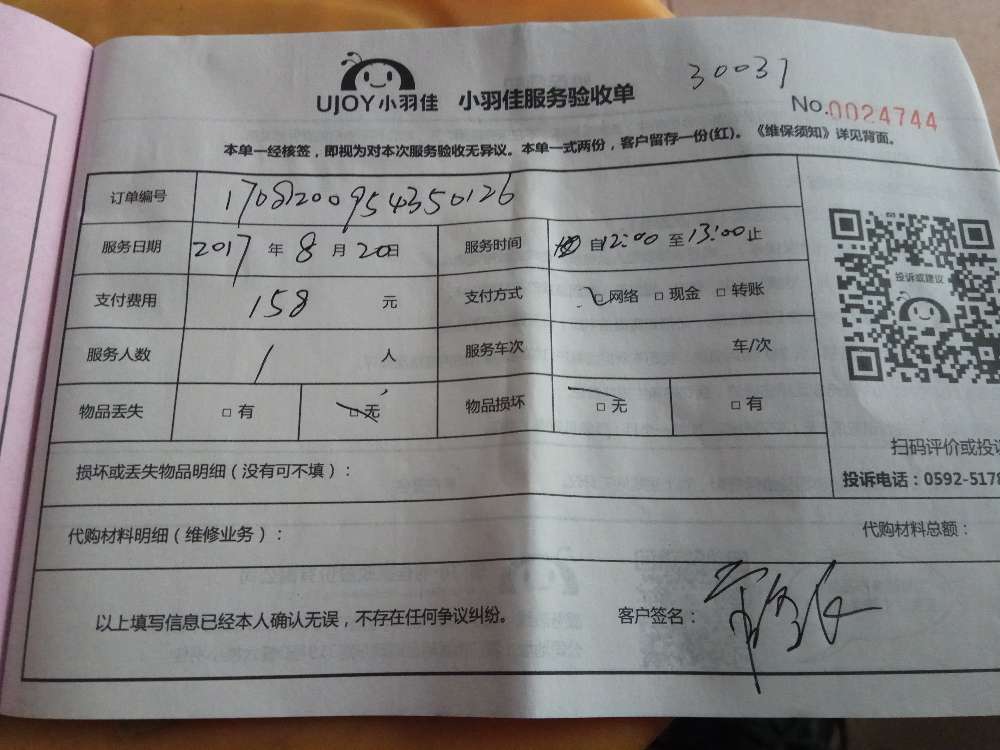 30037
UJOY小羽佳 小羽佳服务验收单
No.0024744
本单一经核签，即视为对本次服务验收无异议。本单一式两份，客户留存一份(红)。《维保须知》详见背面。
订单编号 1708200954350126
服务日期 2017年8月20日 服务时间 自12:00至13:00止
投诉或建议
支付费用 158 元 支付方式 □网络 □现金 □转账
服务人数 1 人 服务车次 车/次
物品丢失 □有 □无 物品损坏 □无 □有
扫码评价或投
损坏或丢失物品明细（没有可不填）：
投诉电话：0592-5178
代购材料明细（维修业务）： 代购材料总额：
以上填写信息已经本人确认无误，不存在任何争议纠纷。 客户签名：